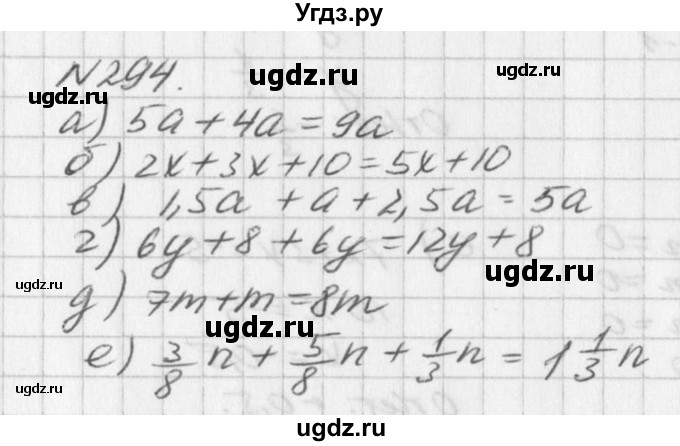 Угдз.ру
N294.
ugdz.ru ugdz.ru ugdz.ru
а) 5a + 4a = 9a
б) 2x + 3x + 10 = 5x + 10
ugdz.ru ugdz.ru
в) 1,5a + a + 2,5a = 5a
г) 6y + 8 + 6y = 12y + 8
ugdz.ru ugdz.ru
д) 7m + m = 8m
ugdz.ru ugdz.ru
е) 3/8 n + 5/8 n + 1/3 n = 1 1/3 n
ugdz.ru ugdz.ru
ugdz.ru